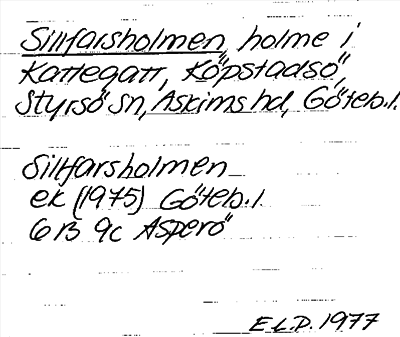 Sillfarsholmen, holme i
Kattegatt, Köpstadsö,
Styrsö sn, Askims hd, Göteb.l.
Sillfarsholmen
ek (1975) Göteb.l.
6B 9c Asperö
E.L.D. 1977